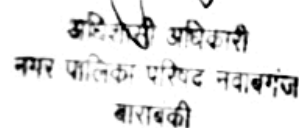 अधिशासी अधिकारी
नगर पालिका परिषद नवाबगंज
बाराबंकी